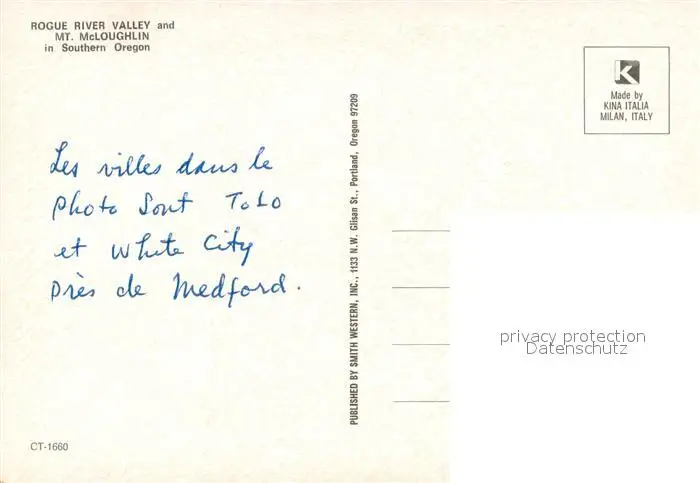 ROGUE RIVER VALLEY and
MT. McLOUGHLIN
in Southern Oregon
K
Made by
KINA ITALIA
MILAN, ITALY
Les villes dans le
photo sont ToLo
et White City
près de Medford.
PUBLISHED BY SMITH WESTERN, INC., 1133 N.W. Glisan St., Portland, Oregon 97209
privacy protection
Datenschutz
CT-1660